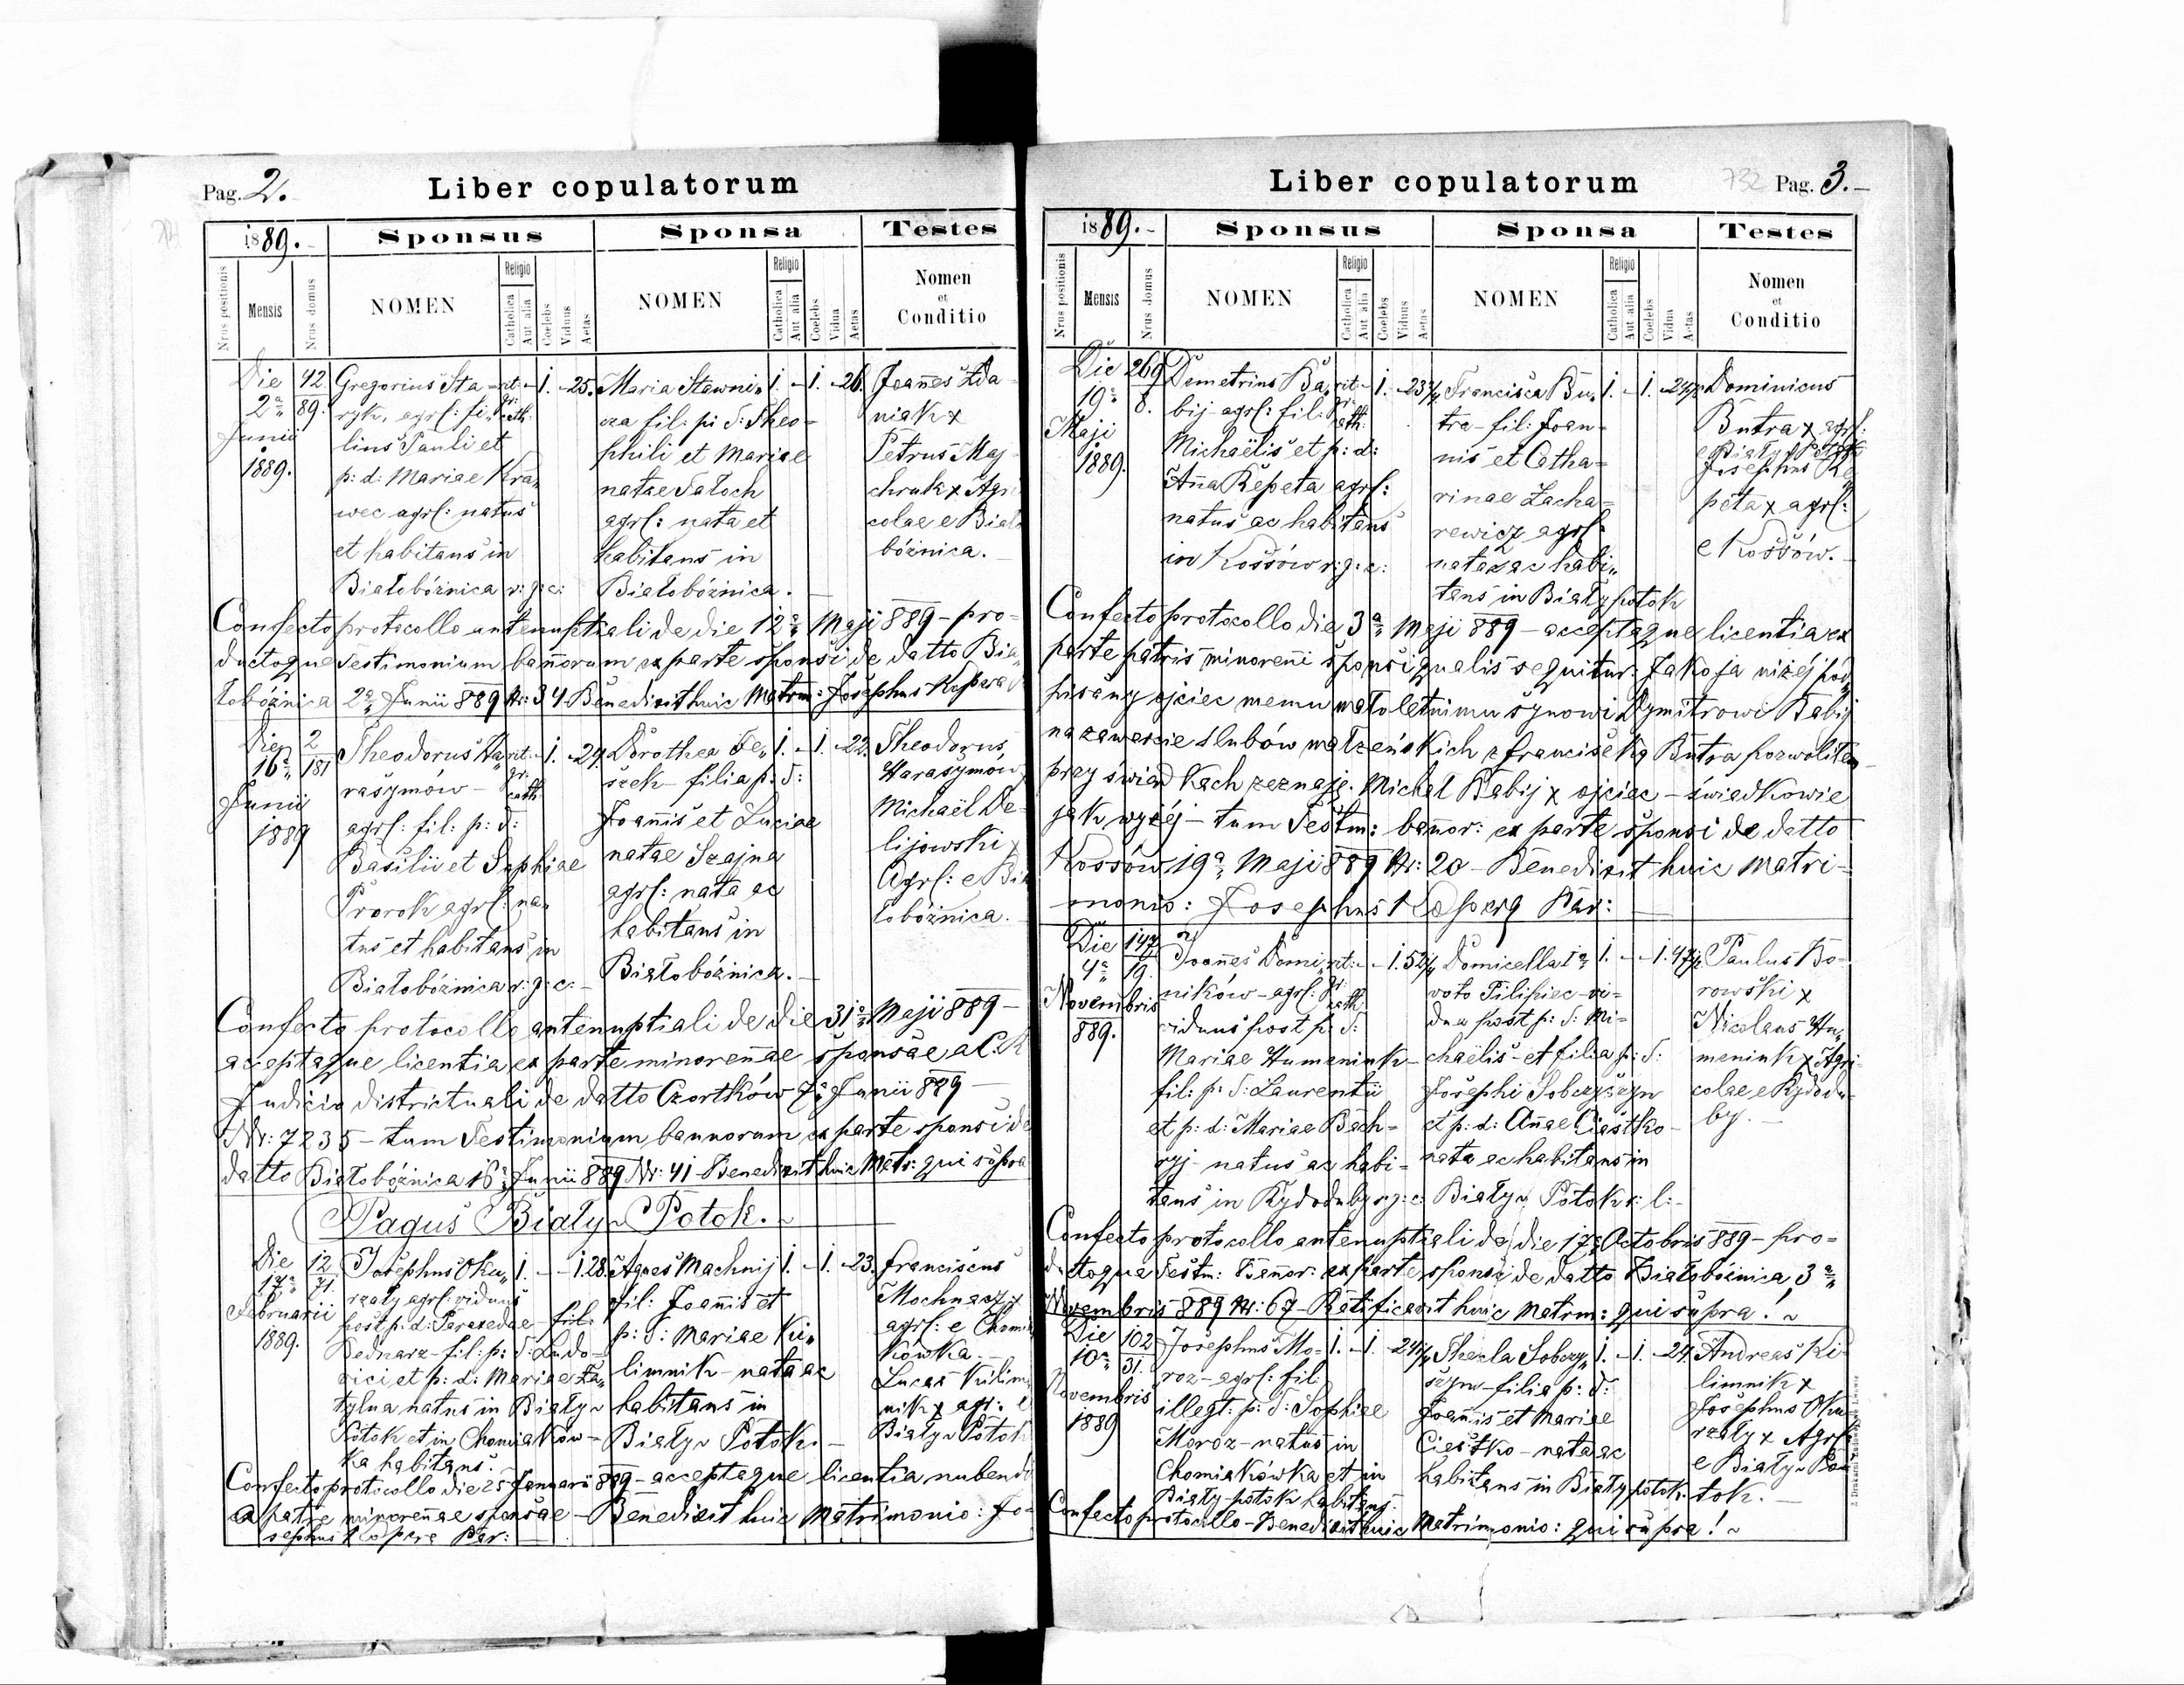 Pag. 2.
Liber copulatorum
1889.
Sponsus
Sponsa
Testes
Nrus positionis
Mensis
Nrus domus
NOMEN
Religio
Catholica
Aut alia
Coelebs
Viduus
Aetas
NOMEN
Religio
Catholica
Aut alia
Coelebs
Vidua
Aetas
Nomen
et
Conditio
Die 2a Junii 1889.
42
89.
Gregorius Sta-
ryk, agrl: fi„
lius Pauli et
p: d: Mariae Kra„
wec agrl: natus
et habitans in
Białobóżnica r: g: c:
rit. gr. cath.
1. 25.
Maria Stawni„
cza fil: pi d: Theo=
phili et Mariae
natae Satoch
agrl: nata et
habitans in
Białobóżnica.
1. - 1. - 26.
Joannes Ada-
niak x
Petrus Maj-
chruk x Agri
colae e Biał
bóżnica.
Confecto protocollo antenuptiali de die 12a Maji 889 - pro-
ductoque Testimonium bannorum ex parte sponsi de datto Bia„
łobóżnica 2a Junii 889 Nr: 34 Benedixit huic Matrm: Josephus Kopera
Die 16a Junii 1889
2
181
Theodorus Ha„
rasymów -
agrl: fil: p: d:
Basilii et Sophiae
Prorok agrl: na„
tus et habitans in
Białobóżnica r: g: c: -
rit. gr. cath.
1. 24.
Dorothea Fe„
szek - filia p: d:
Joannis et Luciae
natae Szajna
agrl: nata ac
habitans in
Białobóżnica. -
1. - 1. - 22.
Theodorus
Harasymów
Michaël De-
lijowski x
Agrl: e Bia
łobóżnica.
Confecto protocollo antenuptiali de die 31a Maji 889 -
acceptaque licentia ex parte minorennae sponsae a C. R
Judicio districtuali de datto Czortków 7a Junii 889 -
Nr: 7235 - tum Testimonium bannorum ex parte sponsi de
datto Białobóżnica 16a Junii 889 Nr: 41 - Benedixit huic Matr: qui supra
Pagus Biały Potok.
Die 17a Februarii 1889.
12
71.
Josephus Oku„
rzały agrl: viduus
post p: d: Paraxedae fil:
Bednarz - fil: p: d: Ludo-
vici et p: d: Mariae Za„
tylna natus in Biały
Potok et in Chomiaków-
ka habitans.
1. - 1. 28.
Agnes Machnij
fil: Joannis et
p: d: Mariae Ki„
limnik - nata ac
habitans in
Biały Potok. -
1. - 1. - 23.
Franciscus
Mochnacz x
agrl: e Chomia
kówka. -
Lucas Kilim
nik x agr: e
Biały Potok
Confecto protocollo die 25 Januarii 889 - acceptaque licentia nubendi
a patre minorennae sponsae - Benedixit huic Matrimonio: Jo-
sephus Kopera Par:
732
Pag. 3.
Liber copulatorum
1889.
Sponsus
Sponsa
Testes
Nrus positionis
Mensis
Nrus domus
NOMEN
Religio
Catholica
Aut alia
Coelebs
Viduus
Aetas
NOMEN
Religio
Catholica
Aut alia
Coelebs
Vidua
Aetas
Nomen
et
Conditio
Die 19a Maji 1889.
269
8.
Demetrius Ba„
bij - agrl: fil:
Michaëlis et p: d:
Anna Repeta agrl:
natus ac habitans
in Kossów r: g: c:
rit. gr. cath.
1. - 23
Francisca Bu„
tra - fil: Joan-
nis et Catha=
rinae Zacha=
rewicz agrl:
nata ac habi„
tans in Biały potok
1. - 1. - 24
Dominicus
Butra x agrl:
e Biały Potok
Josephus Re
peta x agrl:
e Kossów.
Confecto protocollo die 3a Maji 889 - acceptaque licentia ex
parte patris minorenni sponsi qualis sequitur: Jako ja niżej pod„
pisany ojciec memu małoletnimu synowi Dymitrowi Babij
na zawarcie ślubów małżeńskich z Franciszką Butra pozwoliłem
przy świadkach zeznaję. Michał Babij x ojciec - świadkowie
jak wyżéj - tum Testm: bannor: ex parte sponsi de datto
Kossów 19a Maji 889 Nr: 20 - Benedixit huic Matri-
monio: Josephus Kopera Par:
Die 4a Novembris 889.
147
19.
Joannes Domi„
ników - agrl:
viduus post p: d:
Mariae Humeniuk -
fil: p: d: Laurentii
et p: d: Mariae Bach=
ryj - natus ac habi-
tans in Rydoduby r: g: c:
rit. gr. cath.
1. 52
Domicella 1a
voto Pilipiec - vi=
dua post p: d: Mi-
chaëlis - et filia p: d:
Josephi Sobczyszyn
et p: d: Annae Ciastko -
nata ac habitans in
Biały Potok r: l: -
1. - 1. 47
Paulus Bo-
rowski x
Nicolaus Hu„
meniuk x Agri-
colae e Rydodu-
by. -
Confecto protocollo antenuptiali de die 17a Octobris 889 - pro=
ductoque Testm: Bannor: ex parte sponsi de datto Białobóżnica 3a
Novembris 889 Nr: 67 - Ratificavit huic Matrm: qui supra!
Die 10a Novembris 1889
102
31.
Josephus Mo-
roz - agrl: fil:
illegt: p: d: Sophiae
Moroz - natus in
Chomiakówka et in
Biały-potok habitans.
1. - 1. 24
Thecla Sobczy„
szyn - filia p: d:
Joannis et Mariae
Ciestko - nata ac
habitans in Biały potok.
1. - 1. - 24.
Andreas Ki-
limnik x
Josephus Oku-
rzały x Agrl:
e Biały Po
tok. -
Confecto protocollo - Benedixit huic Matrimonio: qui supra!